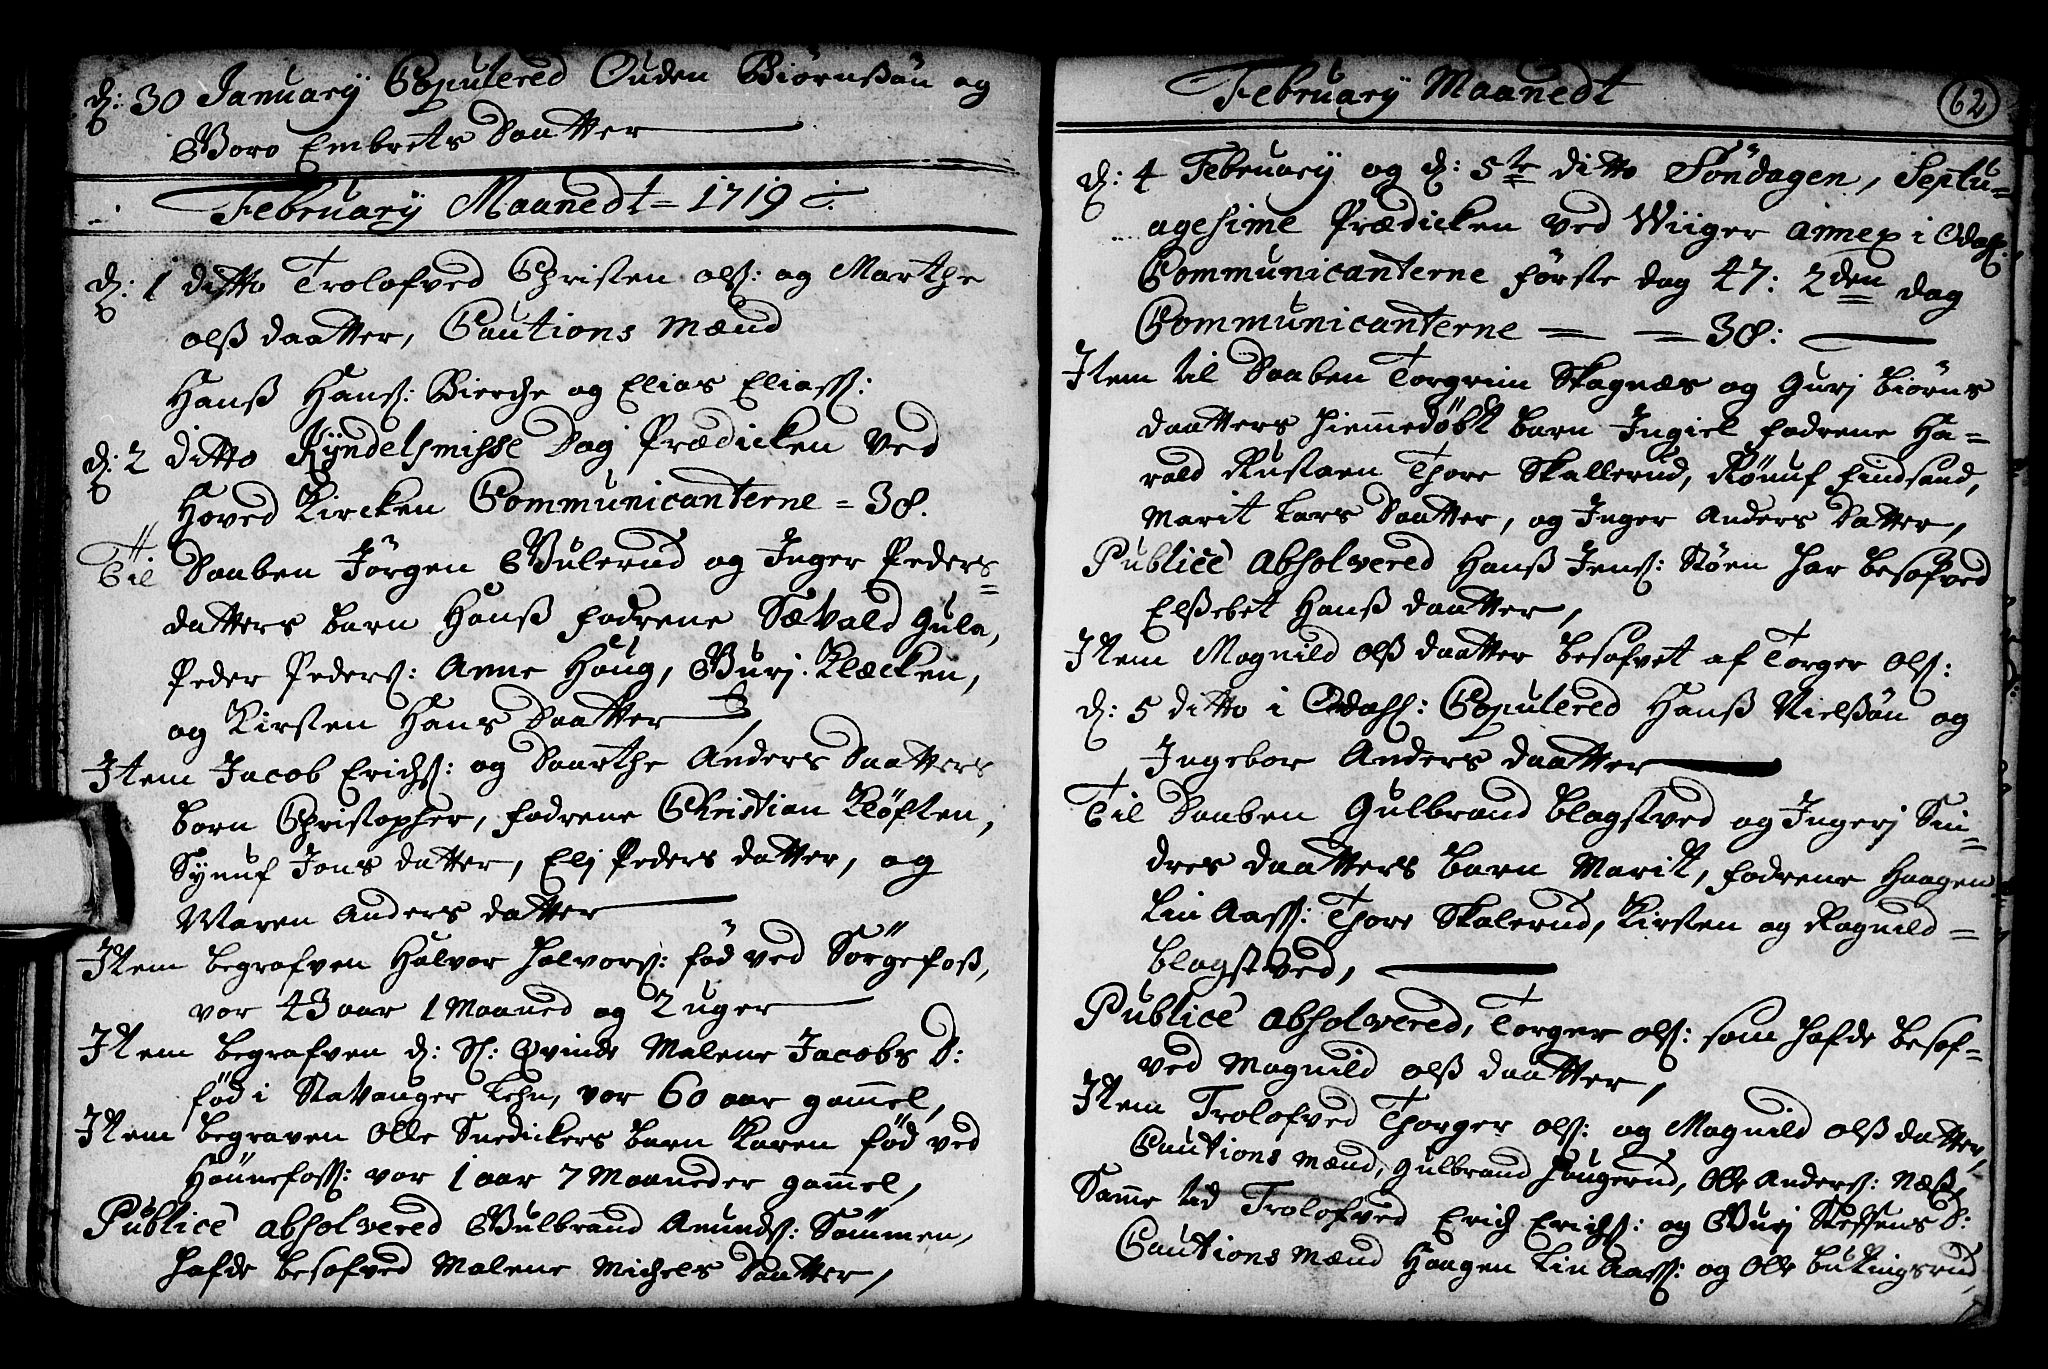 d: 30 January Copulered Ouden Biørnßøn og
Goro Embrets Daatter
February Maanedt = 1719
d: 1 ditto Trolofved Christen olß: og Marthe
olß daatter, Cautions Mænd
Hanß Hanß: Bierche og Elias Eliasß:
d: 2 ditto Kyndelsmisse Dag Prædicken ved
Hoved Kircken Communicanterne = 38.
Til Daaben Jörgen Gulerud og Inger Peders=
datters barn Hanß fadrene Sævald Gula,
Peder Pederß: Anne Haug, Gurj Klæcken,
og Kirsten Hans Daatter
Item Jacob Erichß: og Daarthe Anders Daatters
barn Christopher, fadrene Christian Kløften,
Synuf Jons datter, Elj Peders datter, og
Maren Anders datter
Item begrafven Halvor Halvorß: fød ved Sörgefoß,
var 43 aar 1 Maaned og 2 uger
Item begrafven d: Sl: Qvinde Malene Jacobs D:
fød i Stavanger Lehn, var 60 aar gam̄el,
Item begraven Olle Snedickers barn Karen fød ved
Hönnefosß: var 1 aar 7 Maaneder gam̄el,
Publicè absolvered Gulbrand Amundß: Sømmen,
hafde besofved Malene Michels Daatter,
February Maanedt
62
d: 4 February og d: 5te ditto Söndagen, Septu=
agesime Prædicken ved Wiiger annex i Odahl:
Communicanterne første dag 47: 2den dag
Communicanterne = = 38:
Item til Daaben Torgrim Skagnæs og Gurj biørns
daatters hiem̄edøbt barn Ingiel fadrene Ha=
rald Rustaen Thore Skallerud, Rønuf findsand,
Marit Lars Daatter, og Inger Anders Datter,
Publicè absolvered Hanß Jenß: Støen har besofved
Elßebet Hanß daatter,
Item Magnild olß daatter besofvet af Torger olß:
d: 5 ditto i Odahl: Copulered Hanß Nielßøn og
Ingebor Anders daatter
Til Daaben Gulbrand blagstved og Ingerj Sin=
dres daatters barn Marit, fadrene Haagen
Lin Aasß: Thore Skalerud, Kirsten og Ragnild =
blagstved,
Publicè absolvered, Torger olß: som hafde besof=
ved Magnild olß daatter,
Item Trolofved Thorger olß: og Magnild olß datter,
Cautions mænd, Gulbrand Haugerud, Olle Anderß: Næß,
Sam̄e tid Trolofved Erich Erichß: og Gurj Steffens D:
Cautions Mænd Haagen Lin Aasß: og Olle bukingsrud,